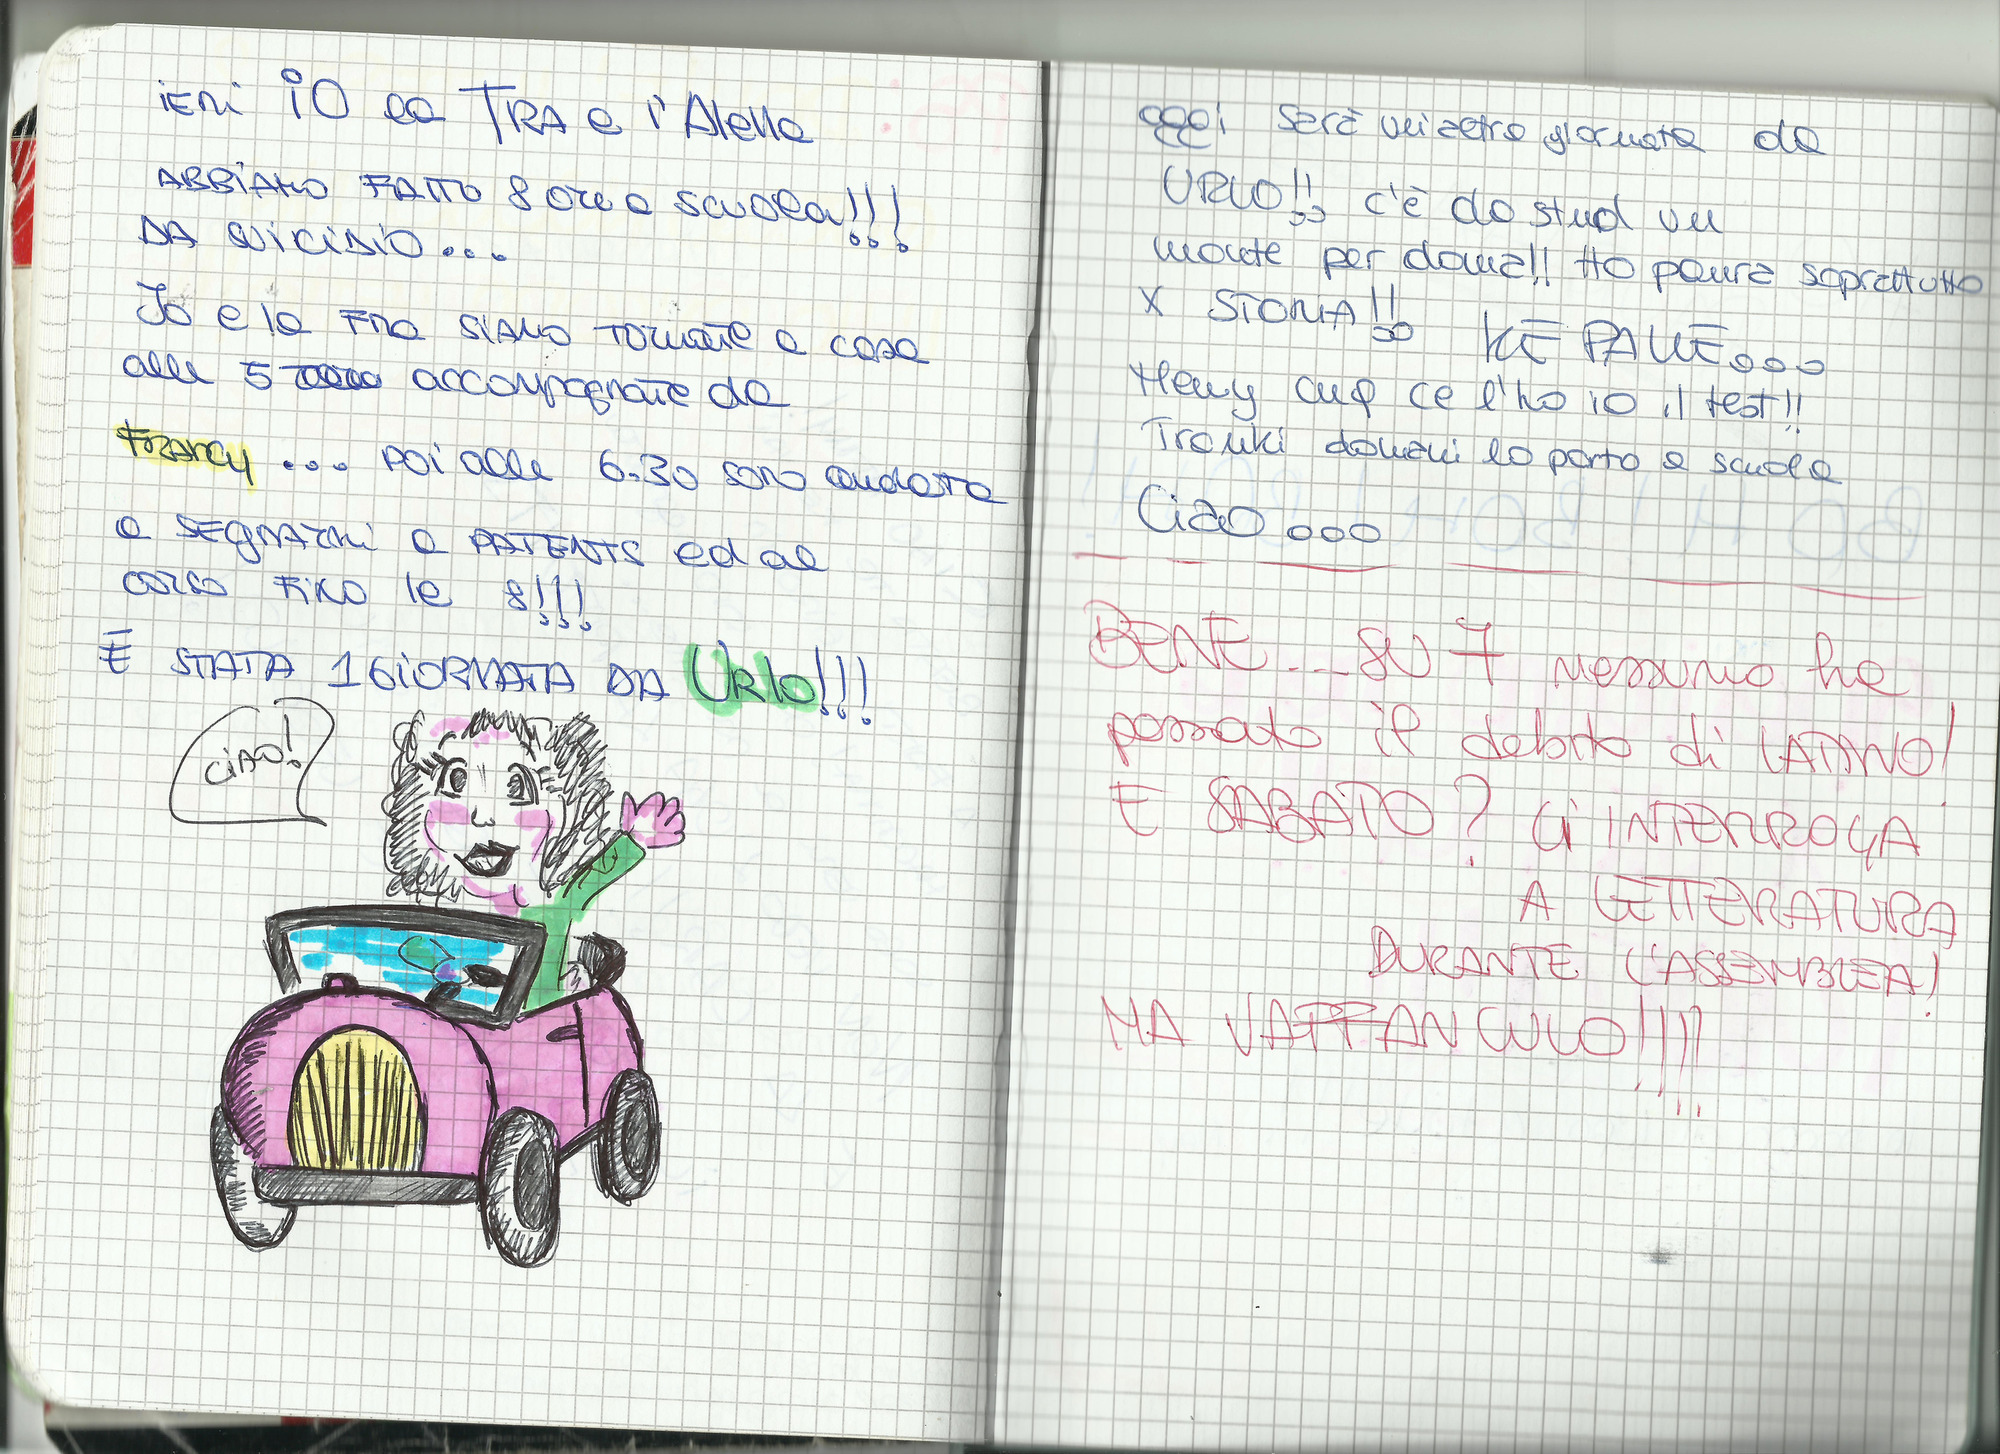 iERi iO la TRA e l'Alella
ABBiAMO FATTO 8 ore a scuola!!!
DA SUiCiDiO...
Io e la FRA SiAMO TORNATE a casa
alle 5 accompagnate da
Francy ... poi alle 6.30 sono andata
a SEGNARMi a PATENTE ed al
corso FiNO le 8!!!
È STATA 1 GiORNATA DA URlO!!!
CiAO!
oggi sarà un'altra giornata da
URLO!! c'è da stud un
monte per doma!! Ho paura soprattutto
X STORIA!! KE PALLE...
Henry cup ce l'ho io il test!!
Tranki domani lo porto a scuola
Ciao...
BENE... SU 7 nessuno ha
passato il debito di LATINO!
E SABATO? Ci INTERROGA
A LETTERATURA
DURANTE L'ASSEMBLEA!
MA VAFFANCULO!!!!